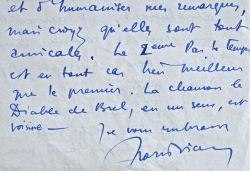 et d'humaniser mes remarques,
mais croyez qu'elles sont tout
amicales. Le 2ème Pas le temps
est en tout cas bien meilleur
que le premier. La chanson le
Diable de Brel, en un sens, est
voisine —
Je vous embrasse